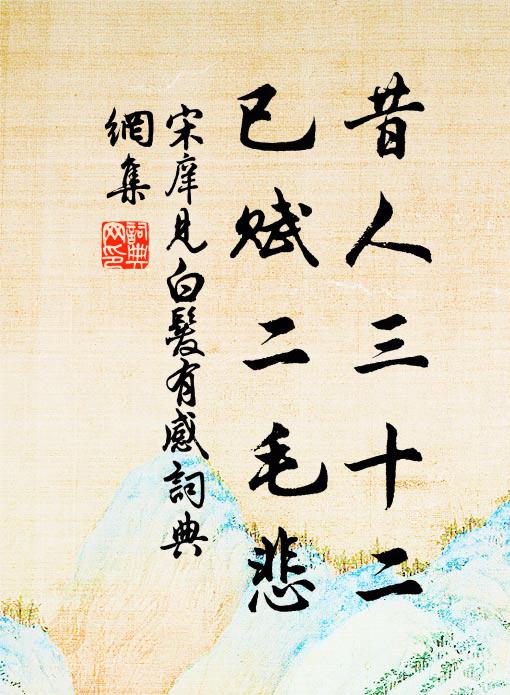 昔人三十二
已賦二毛悲
宋庠見白髮有感詞典
網集
詞典
网印